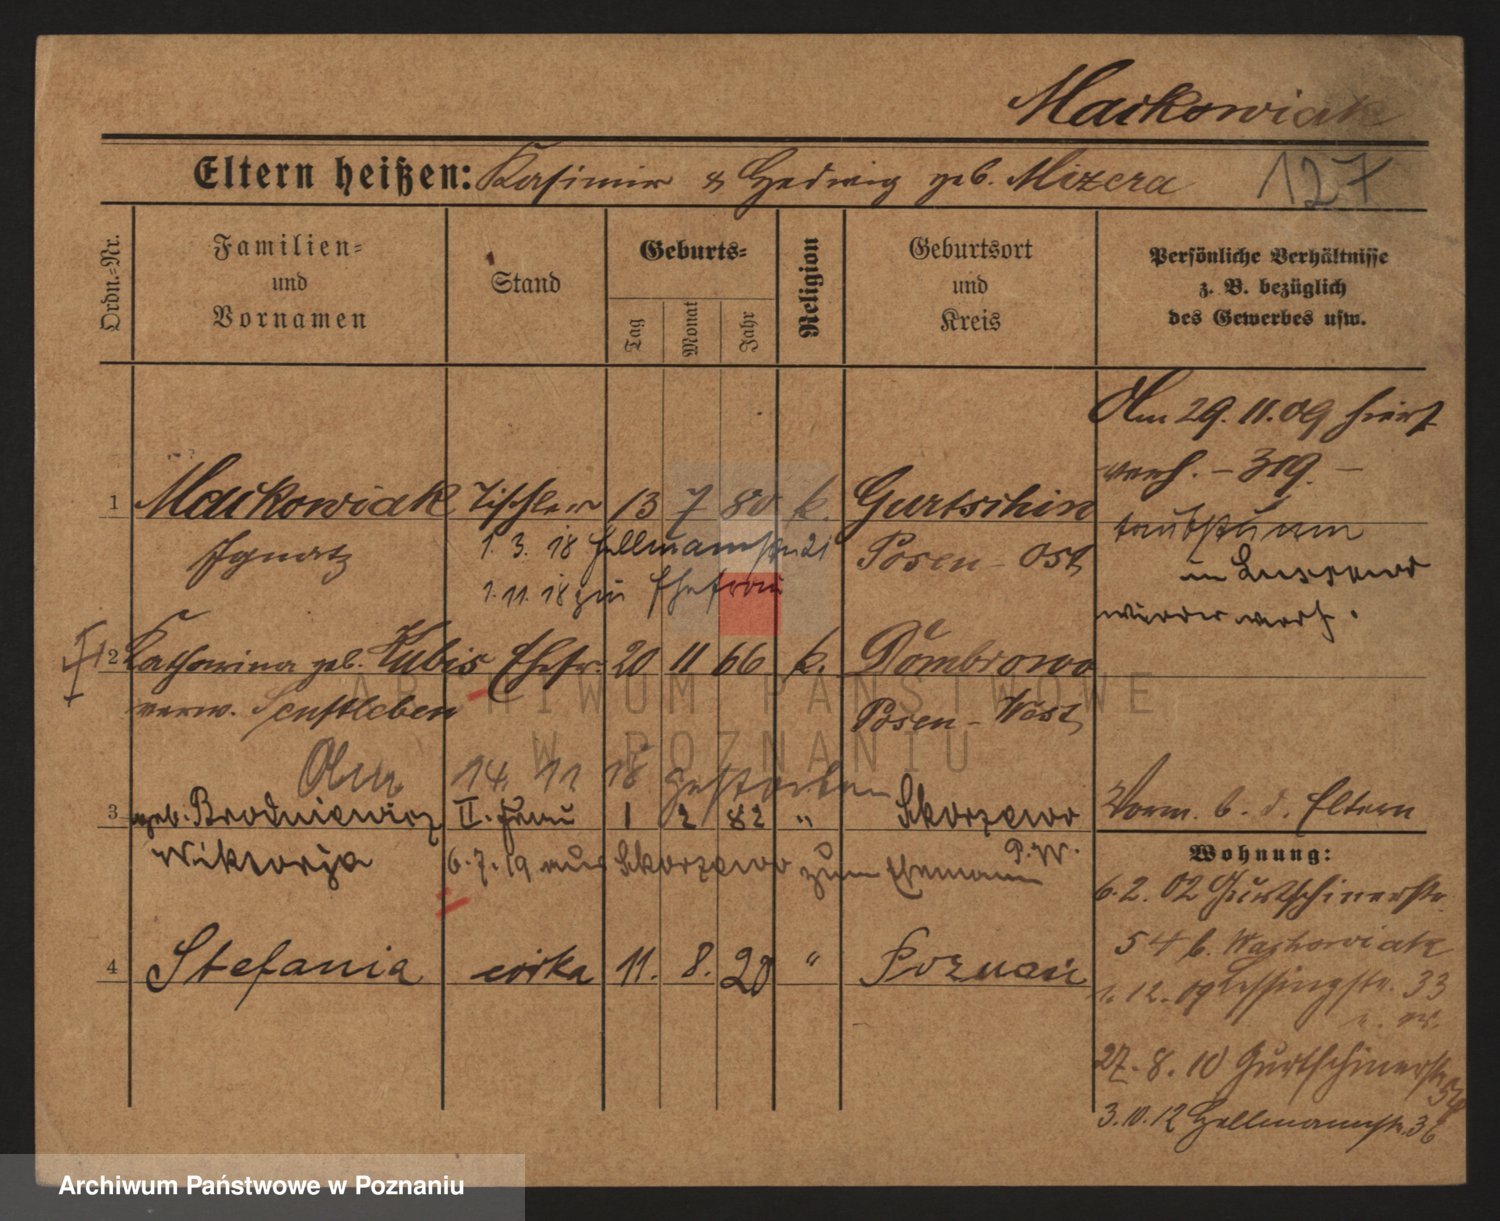 Maćkowiak
Eltern heißen: Kasimir & Hedwig geb. Mizera
127
Ordn.-Nr.
Familien- und Vornamen
Stand
Geburts-
Tag
Monat
Jahr
Religion
Geburtsort und Kreis
Persönliche Verhältnisse z. B. bezüglich des Gewerbes usw.
Am 29. 11. 09 hierf.
verh. – 319. –
1 Maćkowiak Tischler 13 7 80 k. Gurtschin
Ignatz
Posen - Ost
1. 3. 18 Hellmannstr. 21
1. 11. 18 zur Ehefrau
taubstumm
in
wieder verh.
2 Katharina geb. Kubis Ehefr. 20 11 66 k. Dombrowo
verw. Senftleben
Posen - West
Am 14. 11. 18 gestorben
3 geb. Brodniewicz II. Frau 1 2 82 " Skorzewo
Wiktorja 6. 7. 19 aus Skorzewo zum Ehemann
P. W.
Vorm. b. d. Eltern
Wohnung:
6. 2. 02 Gurtschinerstr.
54 b. Maćkowiak
1. 12. 09 Lessingstr. 33
27. 8. 10 Gurtschinerstr. 54
3. 10. 12 Hellmannstr. 36
4 Stefania córka 11. 8. 20 " Poznań
ARCHIWUM PAŃSTWOWE
W POZNANIU
Archiwum Państwowe w Poznaniu